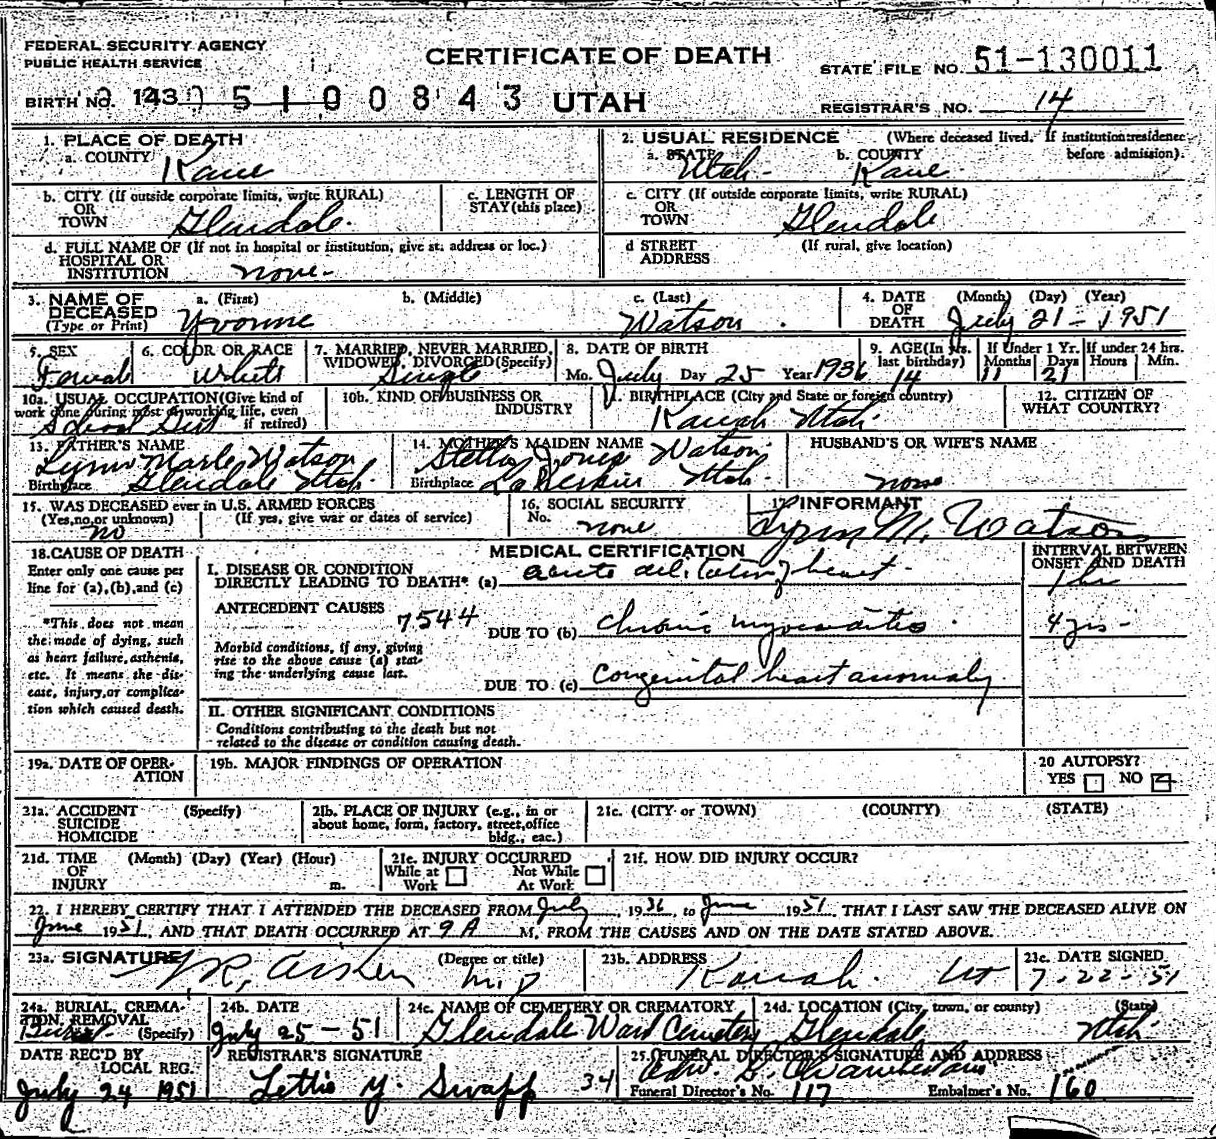 FEDERAL SECURITY AGENCY
PUBLIC HEALTH SERVICE
CERTIFICATE OF DEATH
STATE FILE NO. 51-130011
BIRTH NO. 143 0 5 1 0 0 8 4 3 UTAH
REGISTRAR'S NO. 14
1. PLACE OF DEATH
a. COUNTY Kane
2. USUAL RESIDENCE (Where deceased lived. If institution: residence before admission).
a. STATE Utah. b. COUNTY Kane
b. CITY (If outside corporate limits, write RURAL) OR TOWN Glendale.
c. LENGTH OF STAY (this place)
c. CITY (If outside corporate limits, write RURAL) OR TOWN Glendale
d. FULL NAME OF (If not in hospital or institution, give st. address or loc.) HOSPITAL OR INSTITUTION none-
d STREET ADDRESS (If rural, give location)
3. NAME OF DECEASED (Type or Print) a. (First) Yvonne b. (Middle) c. (Last) Watson.
4. DATE OF DEATH (Month) (Day) (Year) July 21-1951
5. SEX Female
6. COLOR OR RACE White
7. MARRIED, NEVER MARRIED, WIDOWED, DIVORCED (Specify) Single
8. DATE OF BIRTH Mo. July Day 25 Year 1936
9. AGE (In yrs. last birthday) 14 If Under 1 Yr. Months 11 Days 21 If under 24 hrs. Hours Min.
10a. USUAL OCCUPATION (Give kind of work done during most of working life, even if retired) School Girl
10b. KIND OF BUSINESS OR INDUSTRY
11. BIRTHPLACE (City and State or foreign country) Kanab Utah.
12. CITIZEN OF WHAT COUNTRY?
13. FATHER'S NAME Lynn Marlo Watson
Birthplace Glendale Utah.
14. MOTHER'S MAIDEN NAME Stella Jones Watson
Birthplace LaVerkin Utah.
HUSBAND'S OR WIFE'S NAME none
15. WAS DECEASED ever in U.S. ARMED FORCES (Yes, no, or unknown) (If yes, give war or dates of service) no
16. SOCIAL SECURITY No. none
17. INFORMANT Lynn M. Watson
18. CAUSE OF DEATH
Enter only one cause per line for (a), (b), and (c)
*This does not mean the mode of dying, such as heart failure, asthenia, etc. It means the disease, injury, or complication which caused death.
MEDICAL CERTIFICATION
INTERVAL BETWEEN ONSET AND DEATH
I. DISEASE OR CONDITION DIRECTLY LEADING TO DEATH* (a) acute dilitating heart. 1 hr
ANTECEDENT CAUSES 7544
Morbid conditions, if any, giving rise to the above cause (a) stating the underlying cause last.
DUE TO (b) chronic myocarditis. 4 yrs-
DUE TO (c) congenital heart anomaly
II. OTHER SIGNIFICANT CONDITIONS
Conditions contributing to the death but not related to the disease or condition causing death.
19a. DATE OF OPERATION
19b. MAJOR FINDINGS OF OPERATION
20 AUTOPSY? YES NO
21a. ACCIDENT SUICIDE HOMICIDE (Specify)
21b. PLACE OF INJURY (e.g., in or about home, form, factory, street, office bldg., eac.)
21c. (CITY or TOWN) (COUNTY) (STATE)
21d. TIME OF INJURY (Month) (Day) (Year) (Hour) m.
21e. INJURY OCCURRED While at Work Not While At Work
21f. HOW DID INJURY OCCUR?
22. I HEREBY CERTIFY THAT I ATTENDED THE DECEASED FROM July, 1936, to June 1951 THAT I LAST SAW THE DECEASED ALIVE ON
June 1951, AND THAT DEATH OCCURRED AT 9 A M. FROM THE CAUSES AND ON THE DATE STATED ABOVE.
23a. SIGNATURE (Degree or title) M.D
23b. ADDRESS Kanab. Ut
23c. DATE SIGNED 7-22-51
24a. BURIAL, CREMATION, REMOVAL (Specify) Burial
24b. DATE July 25-51
24c. NAME OF CEMETERY OR CREMATORY Glendale Ward Cemetery
24d. LOCATION (City, town, or county) (State) Glendale Utah.
DATE REC'D BY LOCAL REG. July 24 1951
REGISTRAR'S SIGNATURE Lettie Y. Swapp 34
25. FUNERAL DIRECTOR'S SIGNATURE AND ADDRESS
Funeral Director's No. 117 Embalmer's No. 160